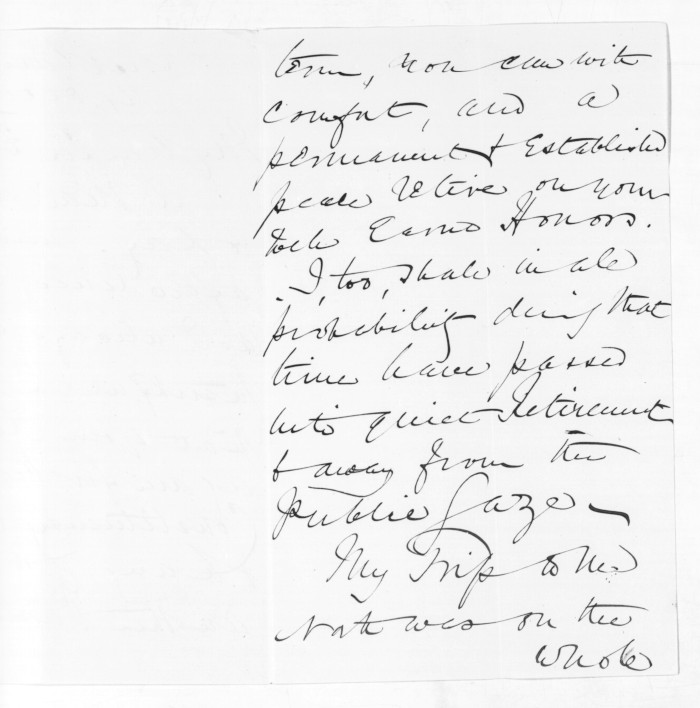 term, you can with
comfort, and a
permanent & Established
peace Retire on your
well Earned Honors.
I, too, shall in all
probability during that
time have passed
into quiet Retirement
& away from the
Public Gaze —
My Trip to the
North was on the
whole